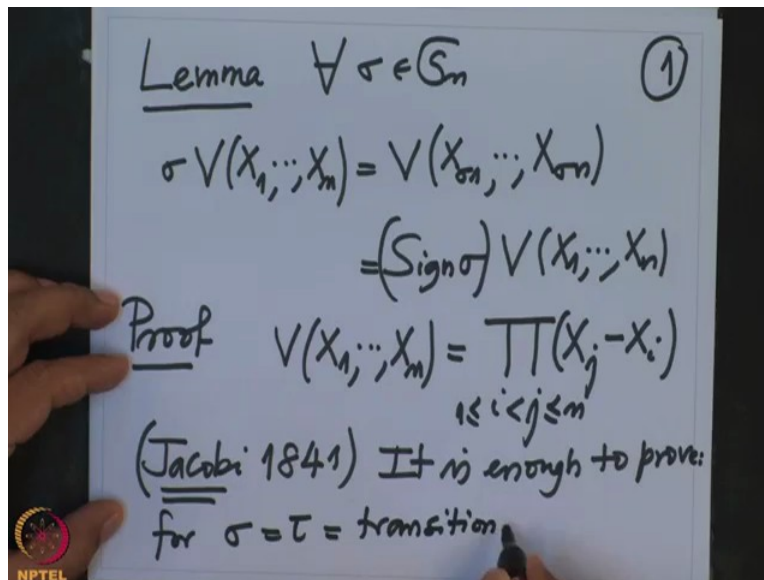 Lemma ∀ σ ∈ Sn ①
σ V(X1,…,Xn) = V(Xσ1,…,Xσn)
= (Sign σ) V(X1,…,Xn)
Proof V(X1,…,Xn) = ∏(Xj − Xi)
1 ≤ i < j ≤ n
(Jacobi 1841) It is enough to prove:
for σ = τ = transition
NPTEL